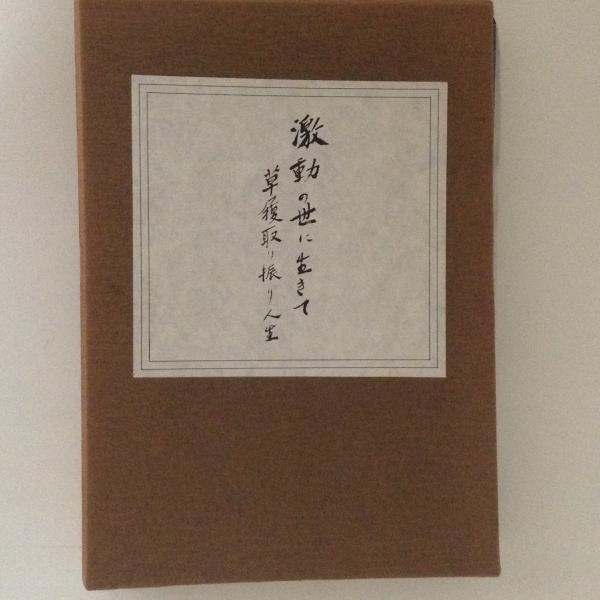 激動の世に生きて
草履取り振り人生